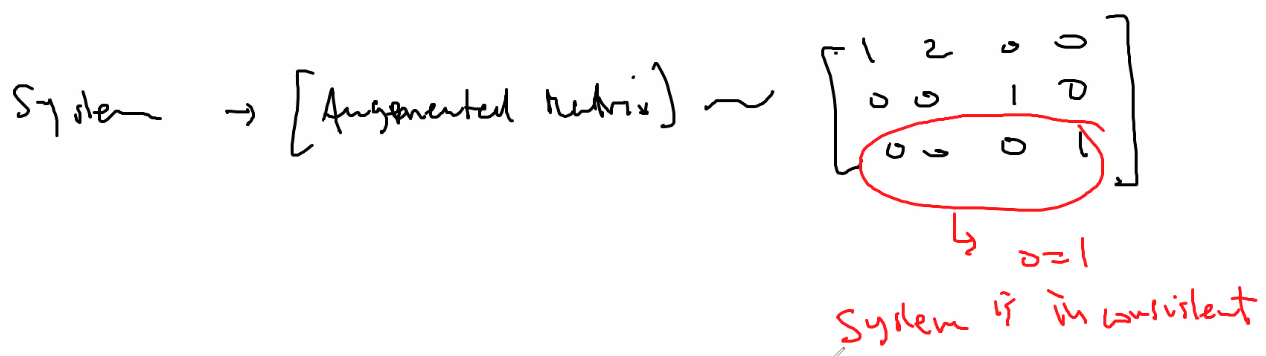 System → [Augmented Matrix] ~ [1 2 0 0
0 0 1 0
0 0 0 1]
0=1
System is inconsistent